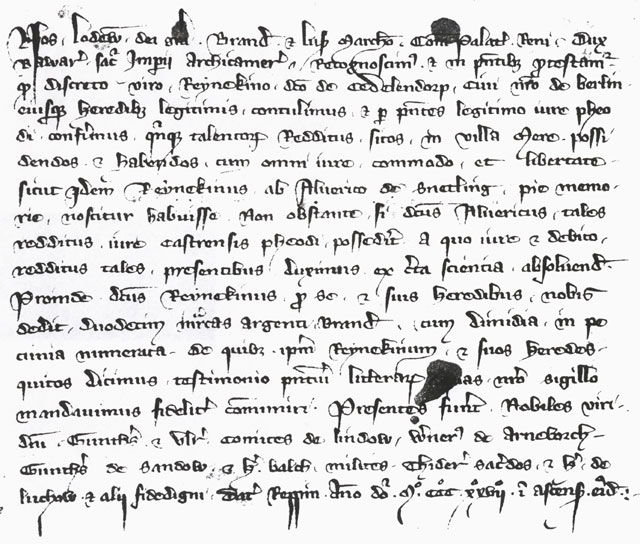 Nos . Lodow . dei gra . Brand . & lus . Marcho . Com Palat . Reni . Dux
Bawar . sac Imperii Archicamer . Recognoscim . & in pntibz protestam .
qd discreto . viro . Reynekino . dco de Cedelendorp . civi nro de berlin .
eiusqz heredibz legitimis . contulimus . & p pntes legitimo iure pheo
di . confirmus . qnqz talentor Redditus . sitos . in villa Mere . possi
dendos . & habendos . cum omni iure . commodo . et libertate .
sicut idem Reynekinus . ab Alverico de Snetling . pie memo .
rie . noscitur habuisse . Non obstante . si dcus Alvericus . tales
redditus . iure castrensis pheodi . possedit . a quo iure & debito .
redditus tales . presentibus duximus . ex cta sciencia . absolvend .
Proinde dcus Reynekinus . p se . & suis heredibus . nobis
dedit . duodecim mrcas argenti . Brand . cum dimidia . in pe
cunia numerata . de quibz ipm Reynekinum . & suos heredes .
quitos dicimus . testimonio pntiu litterar nro sigillo
mandavimus fidelit communiri . Presentes funt . Nobiles viri .
dni . Gunths & Ulr . comites de lindow . Wners de Arneborch .
Gunths de Sandow . & H . balch . milites . Thider sacdos . & H . de
luchow & alii fidedigni . Dat . Anno do . M . CCC . xxvii . i ascens eid .